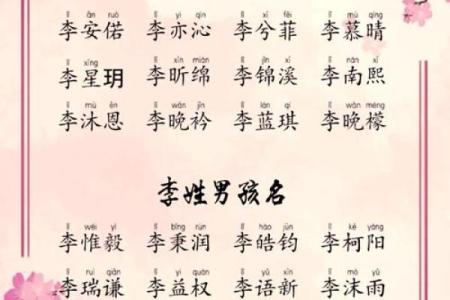 lǐ ān ruò lǐ yì qìn lǐ xī fēi lǐ mù qíng
李安偌 李亦沁 李兮菲 李慕晴
lǐ xīng lǐ xīn mián lǐ jǐn xī lǐ nán xī
李星玥 李昕绵 李锦溪 李南熙
lǐ mù ēn lǐ wǎn jīn lǐ lán qí lǐ wǎn méng
李沐恩 李晚衿 李蓝琪 李晚檬
李姓男孩名
lǐ wéi yì lǐ bǐng rùn lǐ hào jūn lǐ kē yáng
李惟毅 李秉润 李皓钧 李柯阳
lǐ ruì qiān lǐ yì quán lǐ yǔ xīn lǐ mò yǔ
李瑞谦 李益权 李语新 李沫雨